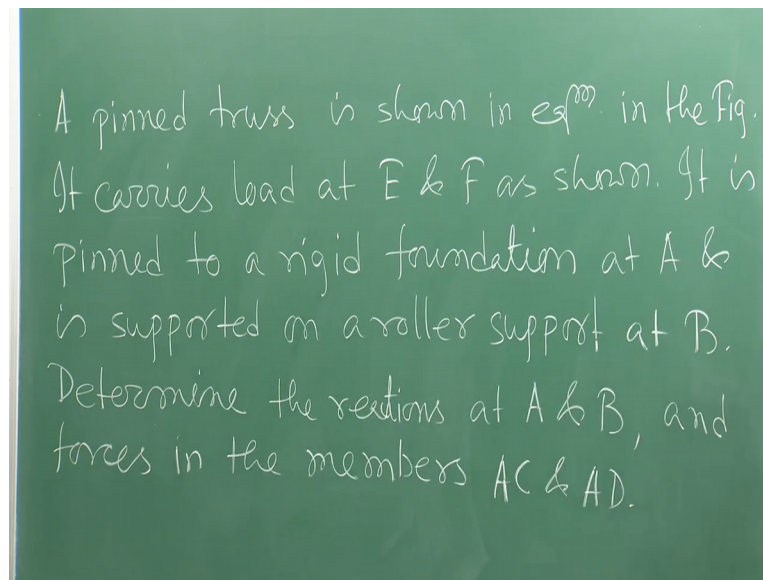 A pinned truss is shown in eqᵐ. in the Fig.
It carries load at E & F as shown. It is
pinned to a rigid foundation at A &
is supported on a roller support at B.
Determine the rections at A & B, and
forces in the members AC & AD.